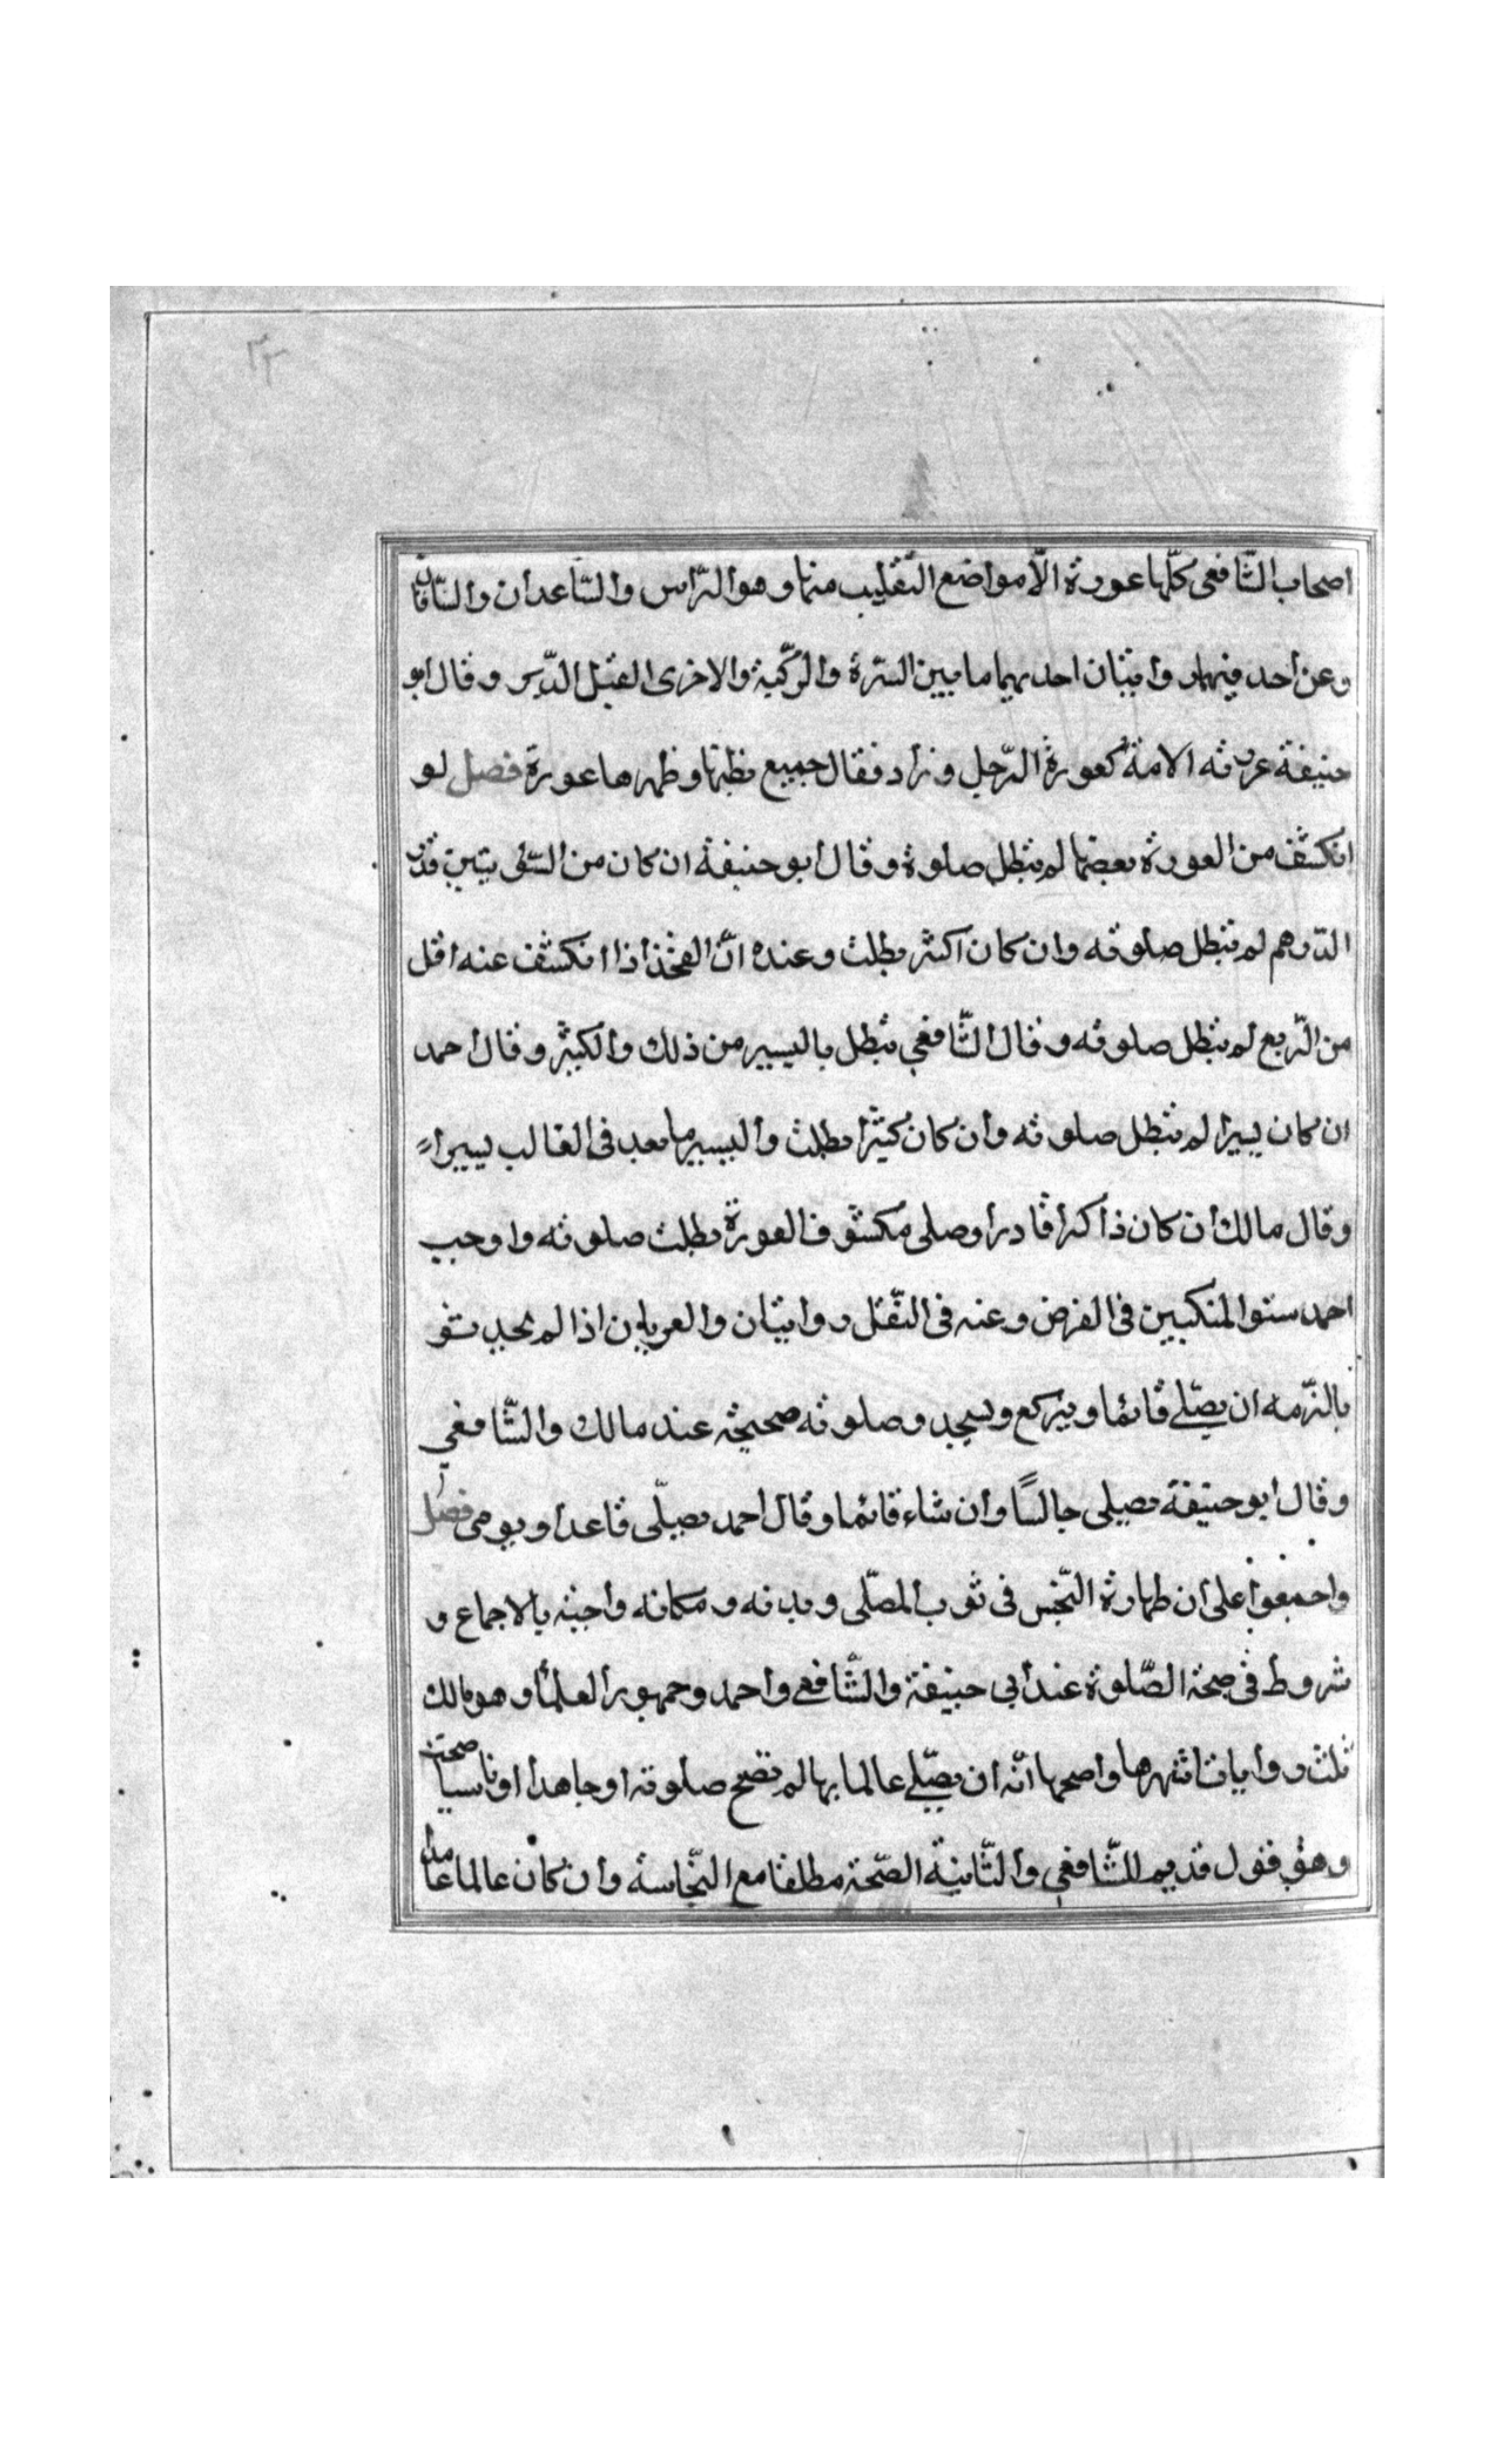 ٣٣
اصحاب الشّافعى كلّها عورة الّا مواضع التقليب منها وهو الرّاس والسّاعدان والسّاقان
وعن احمد فيها روايتان احديهما ما بين السّرة والرّكبة والاخرى القبل الدّبر وقال ابو
حنيفة عورته الامة كعورة الرّجل وزاد فقال جميع بطنها وظهرها عورة فصل لو
انكشف من العورة بعضها لم تبطل صلوة وقال ابو حنيفة ان كان من السّوتين قدر
الدّرهم لم تبطل صلوته وان كان اكثر بطلت وعنده انّ الفخذ اذا انكشف عنه اقل
من الرّبع لم تبطل صلوته وقال الشّافعي تبطل باليسير من ذلك والكثير وقال احمد
ان كان يسيرا لم تبطل صلوته وان كان كثيرا بطلت واليسير ما يعد فى الغالب يسيراً
وقال مالك ان كان ذاكرا قادرا وصلى مكشوف العورة بطلت صلوته واوجب
احمد ستر المنكبين فى الفرض وعنه فى النّفل روايتان والعريان اذا لم يجد
لزمه ان يصلّے قائما ويركع ويسجد وصلوته صحيحة عند مالك والشّافعي
وقال ابو حنيفة يصلى جالسًا وان شاء قائما وقال احمد يصلّى قاعدا ويومى فصل
واجمعوا على ان طهارة النّجس فى ثوب المصلّى وبدنه ومكانه واجبة بالاجماع و
شروط فى صحة الصّلوة عند ابى حنيفة والشّافعى واحمد وجمهور العلمأ وهو مالك
ثلث روايات اشهرها واصحها انّه ان يصلّے عالما بها لم تصح صلوته او جاهدا او ناسيا صحت
وهو قول قديم للشّافعي والثّانية الصّحة مطلقا مع النّجاسة وان كان عالما عامدا